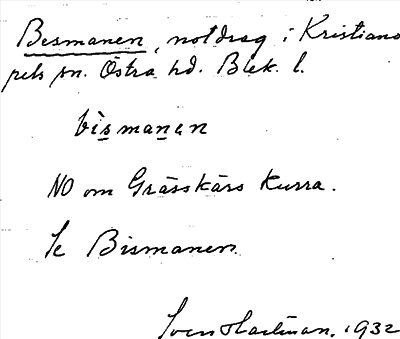 Besmanen, notdrag i Kristiano
pels sn. Östra hd. Blek. l.
bismanen
NO om Grässkärs Kurra.
Se Bismanen
Sven Hartman, 1932